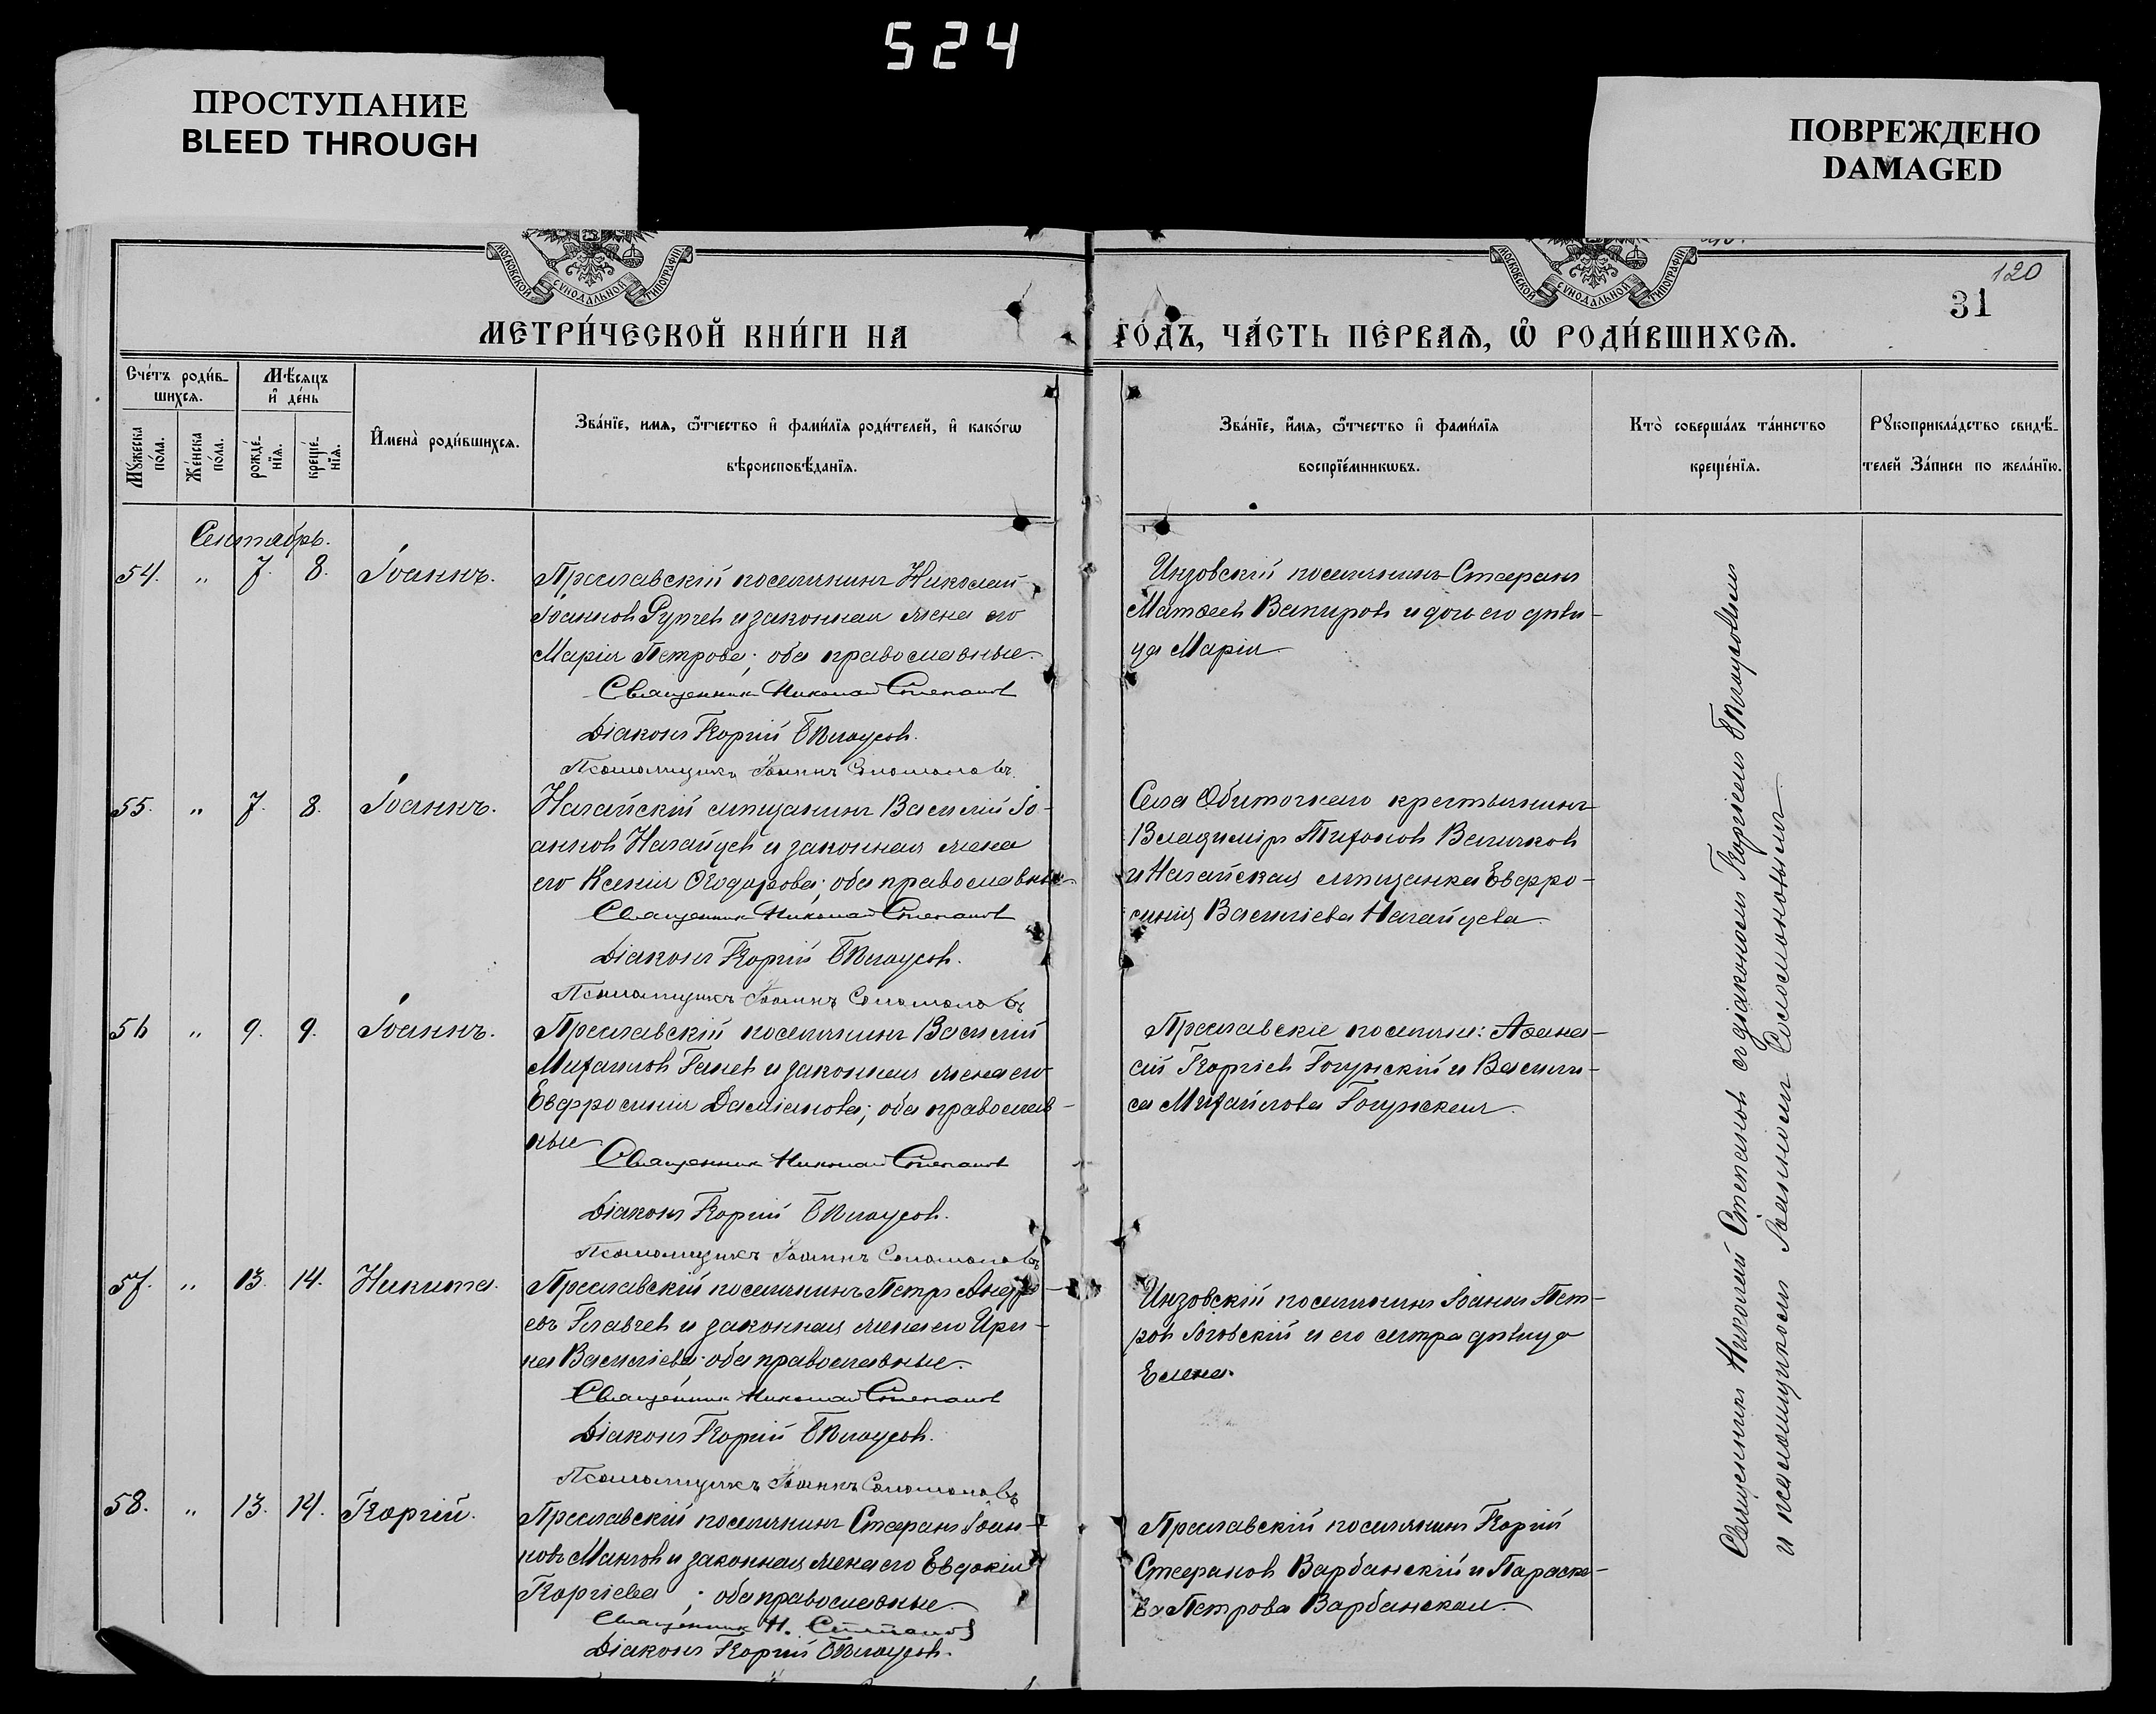 524
ПРОСТУПАНИЕ
BLEED THROUGH
ПОВРЕЖДЕНО
DAMAGED
МОСКОВСКОЙ СУНОДАЛЬНОЙ ТИПОГРАФІИ
МОСКОВСКОЙ СУНОДАЛЬНОЙ ТИПОГРАФІИ
120
31
МЕТРИ́ЧЕСКОЙ КНИ́ГИ НА
ГО́ДЪ, ЧА́СТЬ ПЕ́РВАЯ, Ѡ҆ РОДИ́ВШИХСЯ.
Сче́тъ роди́в-
шихся.
Мѣ́сяцъ
и҆ де́нь
Мꙋ́жеска
по́ла.
Же́нска
по́ла.
рожде́-
нїя.
креще́-
нїя.
И҆мена̀ роди́вшихся.
Зва́нїе, имя, ѻ҆́тчество и҆ фами́лїя роди́телей, и҆ како́гѡ
вѣроисповѣ́данїя.
Зва́нїе, и҆́мя, ѻ҆́тчество и҆ фами́лїя
воспрїе́мникѡвъ.
Кто̀ соверша́лъ та́инство
креще́нїя.
Рꙋкоприкла́дство свидѣ́-
телей За́писи по жела́нїю.
Сентябрь.
54. „ 7. 8. Іоаннъ.
Преславскій поселянинъ Николай
Іоанновъ Рупчевъ и законная жена его
Марія Петрова; оба православные.
Священникъ Николай Степановъ
Діаконъ Георгій Бѣлоусовъ.
Псаломщикъ Іоаннъ Соломоновъ.
Инзовскій поселянинъ Стефанъ
Матѳеевъ Вапировъ и дочь его дѣви-
ца Марія
55. „ 7. 8. Іоаннъ.
Ногайскій мѣщанинъ Василій Іо-
анновъ Нагайцевъ и законная жена
его Ксенія Ѳеодорова; оба православные
Священникъ Николай Степановъ
Діаконъ Георгій Бѣлоусовъ.
Псаломщикъ Іоаннъ Соломоновъ
Села Обиточнаго крестьянинъ
Владиміръ Тихоновъ Величковъ
и Ногайская мѣщанка Евфро-
синія Василіева Нагайцева.
56 „ 9. 9. Іоаннъ.
Преславскій поселянинъ Василій
Михаиловъ Ганевъ и законная жена его
Евфросинія Даміанова; оба православ-
ные
Священникъ Николай Степановъ
Діаконъ Георгій Бѣлоусовъ.
Псаломщикъ Іоаннъ Соломоновъ
Преславскіе поселяне: Аѳана-
сій Георгіевъ Гогунскій и Васили-
са Михайлова Гогунская.
57. „ 13. 14. Никита.
Преславскій поселянинъ Петръ Андре-
евъ Главчевъ и законная жена его Ири-
на Василіева; оба православные.
Священникъ Николай Степановъ
Діаконъ Георгій Бѣлоусовъ.
Псаломщикъ Іоаннъ Соломоновъ
Инзовскій поселянинъ Іоаннъ Пет-
ровъ и его сестра дѣвица
Елена.
58. „ 13. 14. Георгій.
Преславскій поселянинъ Стефанъ Іоан-
новъ Манчевъ и законная жена его Евдокія
Георгіева; оба православные.
Священникъ Н. Степановъ
Діаконъ Георгій Бѣлоусовъ.
Преславскій поселянинъ Георгій
Стефановъ Варбанскій и Параске-
ва Петрова Варбанская.
Священникъ Николай Степановъ съ діакономъ Георгіемъ Бѣлоусовымъ
и псаломщикомъ Іоанномъ Соломоновымъ.